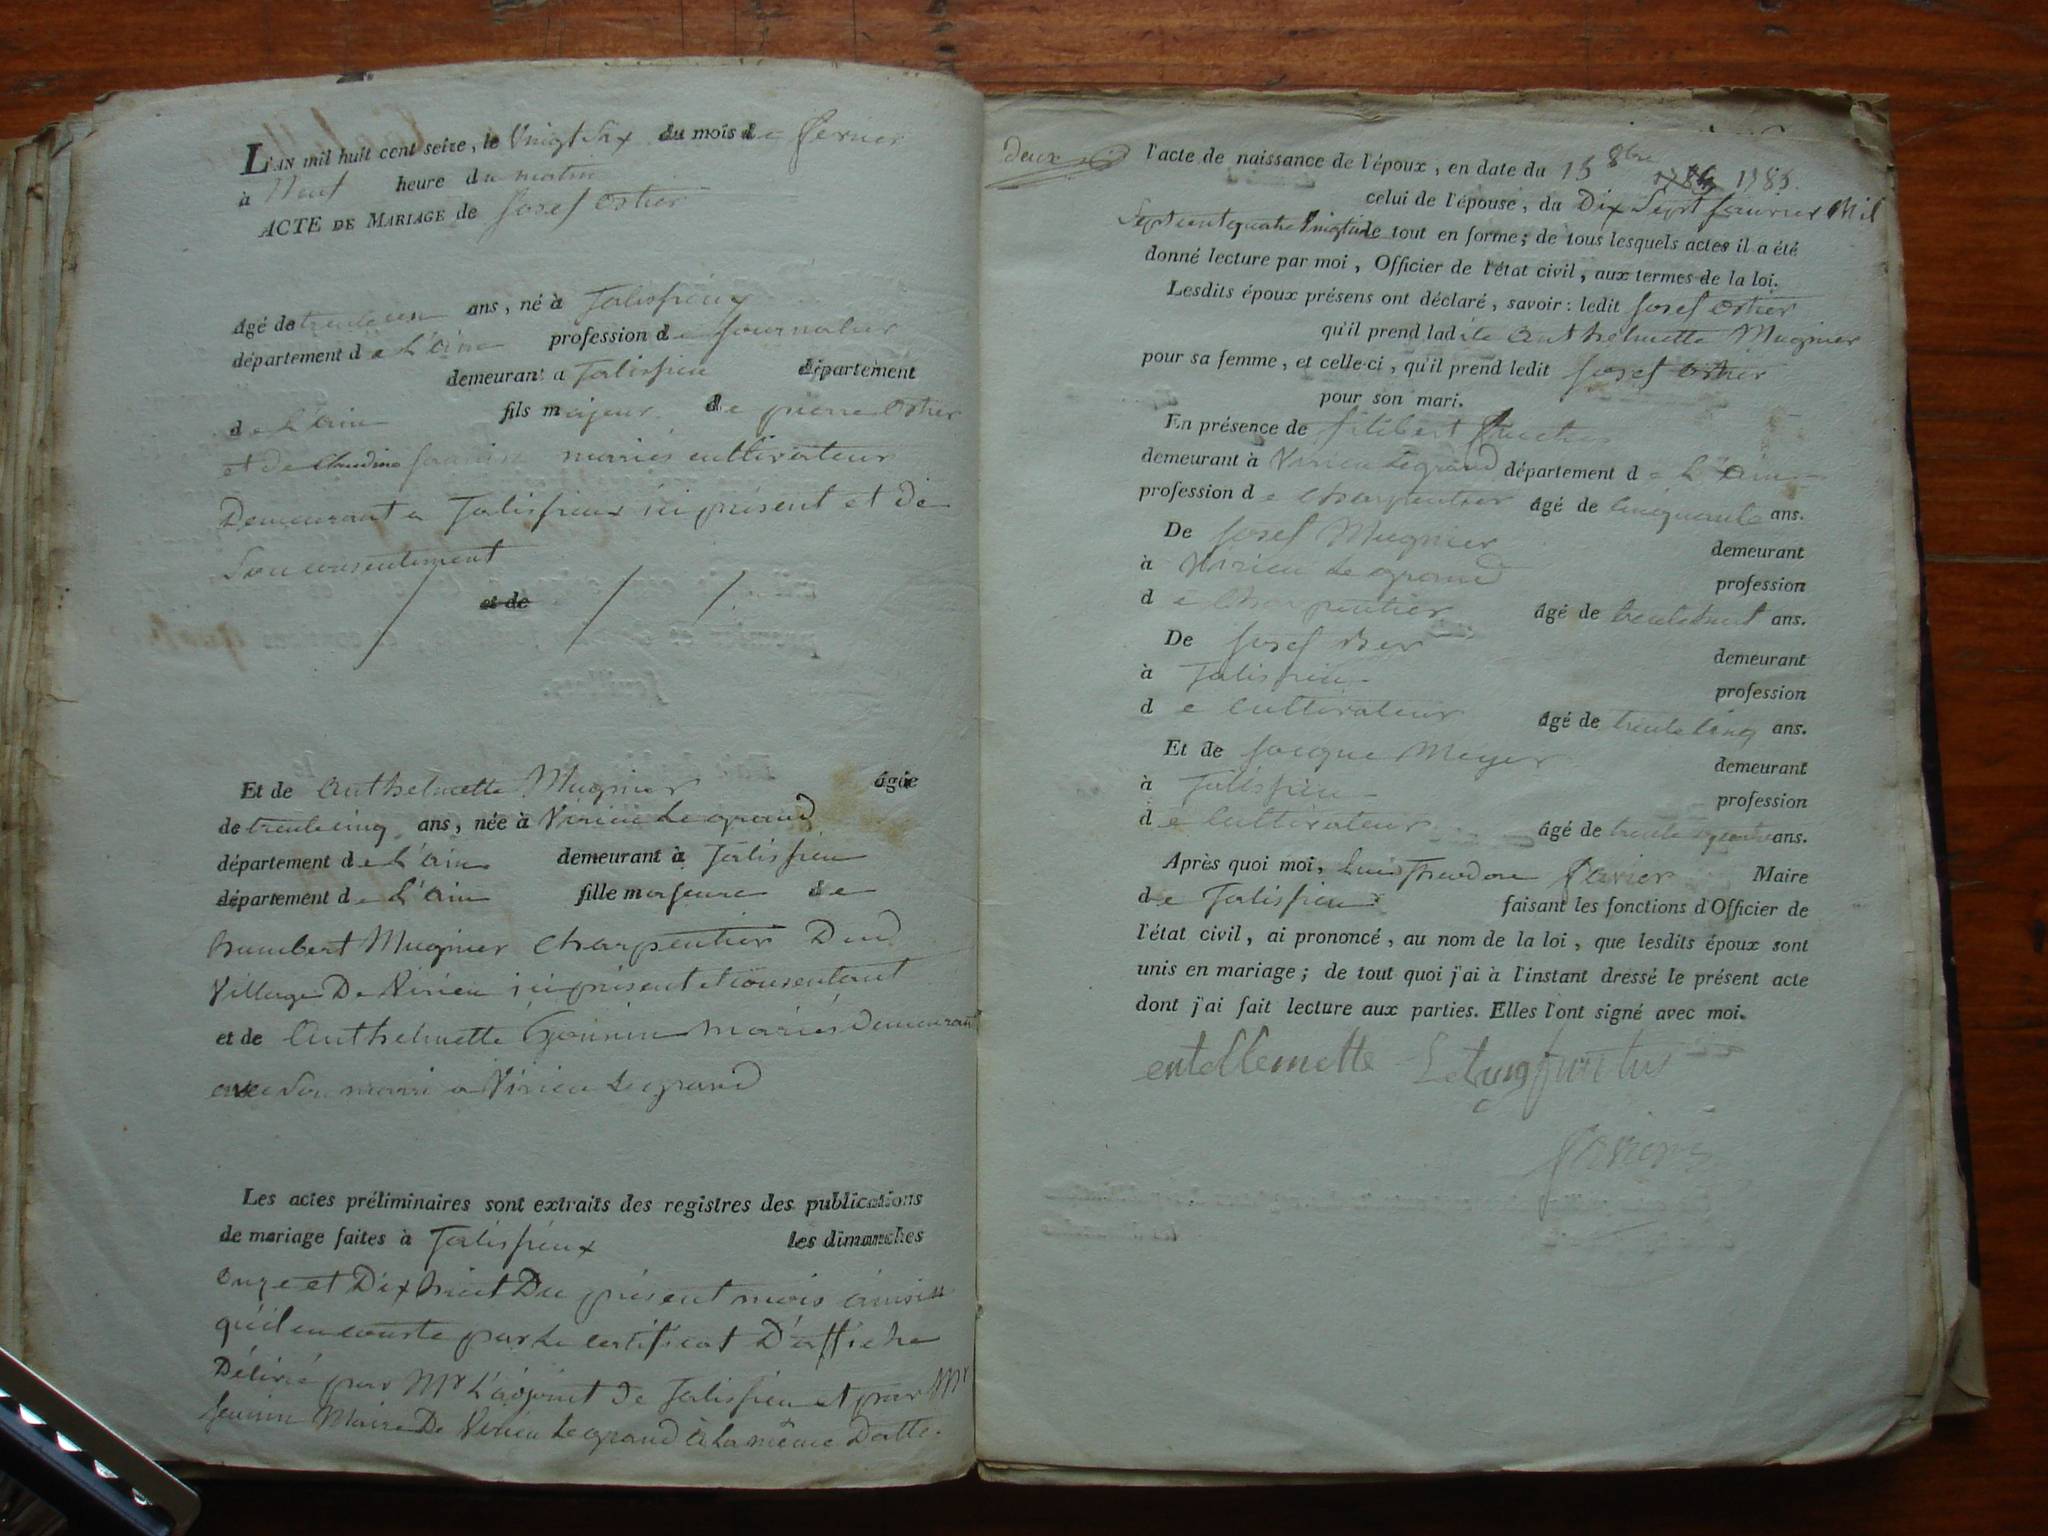 L'AN mil huit cent seize, le Vingt Six du mois de fevrier
à Neuf heure du matin
ACTE DE MARIAGE de Josef Ostier
âgé de trente un ans, né à Talissieux
département de L'ain profession de Journalier
demeurant a Talissieu département
de L'ain fils majeur de pierre Ostier
et de Claudine mariés cultivateur
Demeurant a Talissieux ici présent et de
Son consentement
et de
Et de Anthelmette Mugnier âgée
de trente cinq ans, née à Virieu Le grand
département de L'ain demeurant à Talissieu
département de L'ain fille majeure de
humbert Mugnier Charpentier Dud
Village De Virieu ici présent et consentant
et de Anthelmette mariés Demeurant
avec Son mari a Virieu Le grand
Les actes préliminaires sont extraits des registres des publications
de mariage faites à Talissieux les dimanches
Onze et Dix huit Du présent mois ainsi
qu'il en conste par Le certificat D'affiche
Délivré par Mr L'adjoint de Talissieu et par Mr
Jannin Maire De Virieu Le grand à La même Datte.
deux
l'acte de naissance de l'époux, en date du 15 8bre 1785.
celui de l'épouse, du Dix Sept Mil
Sept cent quatre Vingt un le tout en forme; de tous lesquels actes il a été
donné lecture par moi, Officier de l'état civil, aux termes de la loi.
Lesdits époux présens ont déclaré, savoir: ledit Josef Ostier
qu'il prend ladite Anthelmette Mugnier
pour sa femme, et celle-ci, qu'il prend ledit Josef Ostier
pour son mari.
En présence de filibert
demeurant à Virieu Le grand département de L'ain
profession de Charpentier âgé de cinquante ans.
De Josef Mugnier demeurant
à Virieu Le grand profession
de Charpentier âgé de trente huit ans.
De Josef Ber demeurant
à Talissieu profession
de Cultivateur âgé de trente cinq ans.
Et de Jacque Meyer demeurant
à Talissieu profession
de Cultivateur âgé de trente quatre ans.
Après quoi moi, Louis Theodore favier Maire
de Talissieu faisant les fonctions d'Officier de
l'état civil, ai prononcé, au nom de la loi, que lesdits époux sont
unis en mariage; de tout quoi j'ai à l'instant dressé le présent acte
dont j'ai fait lecture aux parties. Elles l'ont signé avec moi.
entellemette
favier